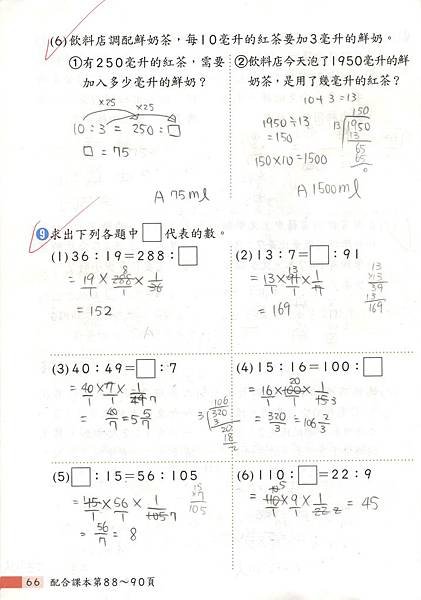 (6)飲料店調配鮮奶茶，每10毫升的紅茶要加3毫升的鮮奶。
①有250毫升的紅茶，需要加入多少毫升的鮮奶？
×25
×25
10:3=250:□
□=75
A 75ml
②飲料店今天泡了1950毫升的鮮奶茶，是用了幾毫升的紅茶？
10+3=13
1950÷13
=150
150×10=1500
150
13 1950
13
65
65
0
A 1500ml
9 求出下列各題中□代表的數。
(1)36：19=288：□
= 19/1 × 288/1 × 1/36
8
=152
(2)13：7=□：91
= 13/1 × 91/1 × 1/7
13
=169
13
×13
39
13
169
(3)40：49=□：7
= 40/1 × 7/1 × 1/49
7
= 40/7 = 5 5/7
(4)15：16=100：□
= 16/1 × 100/1 × 1/15
20
3
= 320/3 = 106 2/3
106
3 320
3
20
18
2
(5)□：15=56：105
= 15/1 × 56/1 × 1/105
7
= 56/7 = 8
15
×7
105
(6)110：□=22：9
= 110/1 × 9/1 × 1/22
= 45
66 配合課本第88～90頁